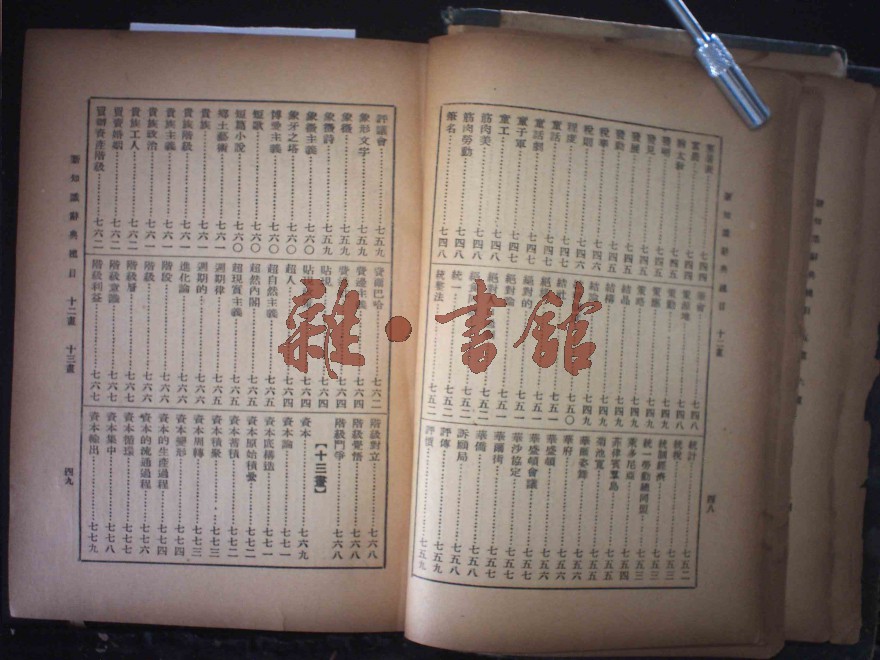 新知識辭典總目　十二畫
四八
富農……七四四
發明……七四五
發見……七四五
發展……七四五
發動……七四五
稅率……七四六
稅則……七四六
程度……七四六
童話……七四六
童話劇……七四七
童子軍……七四七
童工……七四八
筋肉美……七四八
筋肉勞動……七四八
筆名……七四八
筆會……七四八
策源地……七四八
策動……七四九
策應……七四九
策略……七四九
結晶……七四九
結構……七四九
結社……七五一
絕對的……七五一
絕對論……七五一
統一……七五二
統整法……七五二
統計……七五二
統稅……七五三
統制經濟……七五三
統一勞動總同盟……七五三
菲律賓羣島……七五五
菊池寬……七五五
華爾姿舞……七五五
華府……七五六
華盛頓……七五六
華盛頓會議……七五七
華沙協定……七五七
華爾街……七五七
華僑……七五八
訴願局……七五八
評傳……七五九
評價……七五九
評議會……七五九
象形文字……七五九
象徵……七五九
象徵詩……七五九
象徵主義……七六〇
象牙之塔……七六〇
博愛主義……七六〇
短歌……七六〇
短篇小說……七六〇
鄉土藝術……七六〇
貴族……七六一
貴族階級……七六一
貴族主義……七六一
貴族政治……七六一
貴族工人……七六二
買賣婚姻……七六二
買辦資產階級……七六二
費爾巴哈……七六二
費邊主義
貼現……七六四
超人……七六四
超自然主義……七六四
超然內閣……七六五
超現實主義……七六五
週期律……七六五
週期的……七六六
進化論……七六六
階段……七六六
階級……七六六
階級層……七六七
階級意識……七六七
階級利益……七六七
階級對立……七六八
階級覺悟……七六八
階級鬥爭……七六八
【十三畫】
資本……七六九
資本論……七七一
資本底構造……七七一
資本原始積彙……七七二
資本蓄積……七七二
資本積聚……七七三
資本周轉……七七三
資本變形……七七四
資本的生產過程……七七四
資本的流通過程……七七六
資本循環……七七七
資本集中……七七八
資本輸出……七七九
新知識辭典總目　十二畫　十三畫
四九
雜·書館